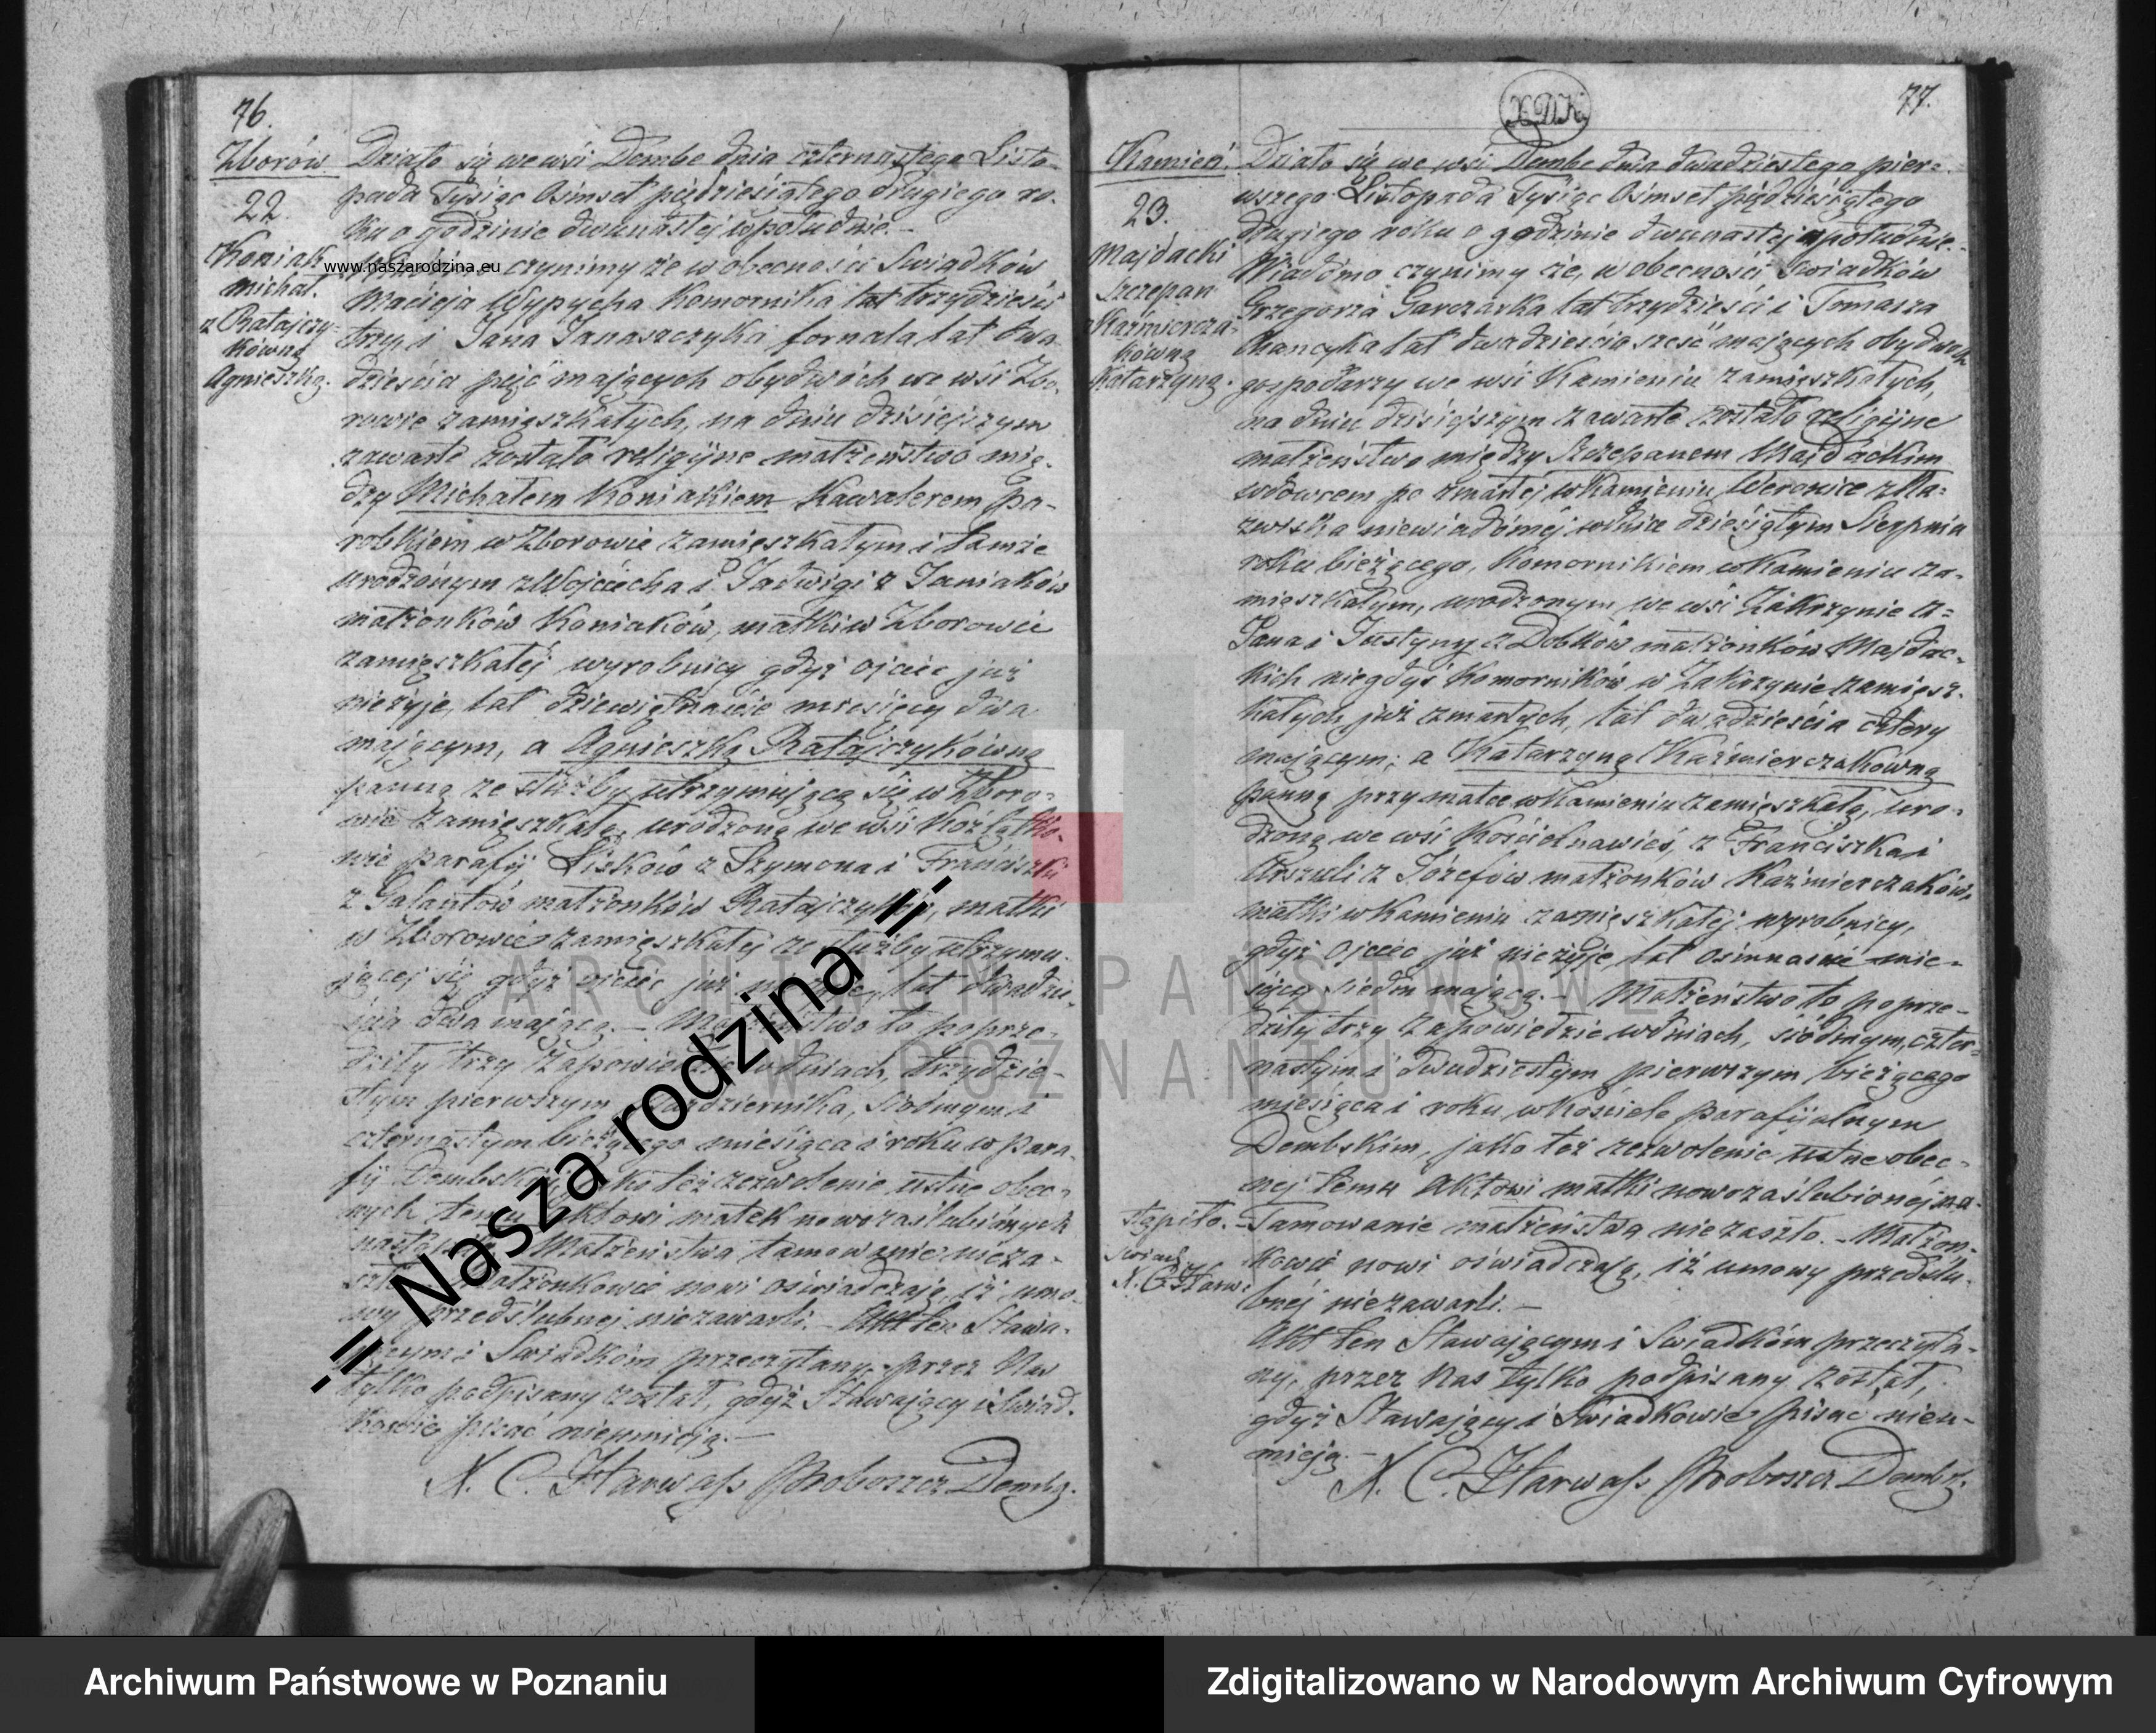 76.
Zborów
22.
Koniak
Michał.
z Ratajczy-
kówną
Agnieszką.
Działo się we wsi Dembe dnia czternastego Listo-
pada Tysiąc Ośmset pięćdziesiątego drugiego ro-
ku o godzinie dwunastej w południe. –
czynimy że w obecności Swiadków
Macieja Wypycha Komornika lat trzydzieści
trzy i Jana Janaszczyka fornala lat dwa
dzieścia pięć mających obydwóch we wsi Zbo-
rowie zamięszkałych, na dniu dzisiejszym
zawarte zostało religijne małżeństwo mię-
dzy Michałem Koniakiem Kawalerem pa-
robkiem w Zborowie zamięszkałym i tamże
urodzonym z Wojciecha i Jadwigi z Janiaków
małżonków Koniaków, matki w Zborowie
zamięszkałej wyrobnicy gdyż ojciec już
nieżyje, lat dziewiętnaście miesięcy dwa
mającym, a Agnieszką Ratajczykówną
panną ze służby utrzymującą się w Zboro-
wie zamięszkałą, urodzoną we wsi Koźlątko-
wie parafij Lisków z Szymona i Franciszki
z Galantów małżonków Ratajczyków, matki
w Zborowie zamięszkałej ze służby utrzymu-
jącej się gdyż ojciec już nieżyje, lat dwadzie-
ścia dwa mającą. – Małżeństwo to poprze-
dziły trzy zapowiedzie w dniach, trzydzie-
stym pierwszym Października, siódmym i
czternastym bieżącego miesiąca i roku w para-
fij Dembskiej, jako też zezwolenie ustne obec-
nych temu Aktowi matek nowozaślubionych
nastąpiło. Małżeństwa tamowanie nieza-
szło. Małżonkowie nowi oświadczają, iż umo-
wy przedślubnej niezawarli. – Akt ten Stawa-
jącym i Swiadkóm przeczytany, przez Nas
tylko podpisany został, gdyż Stawający i Swiad-
kowie pisać nieumieją. –
X. C. Harwass Proboszcz Dembs.
XDK
77.
Kamień.
23.
Majdacki
Szczepan
z Kaźmiercza-
kówną
Katarzyną.
Działo się we wsi Dembe dnia dwudziestego pier-
wszego Listopada Tysiąc Ośmset pięćdziesiątego
drugiego roku o godzinie dwunastej w południe. –
Wiadomo czynimy że, w obecności Swiadków
Grzegorza Garczarka lat trzydzieści i Tomasza
lat dwadzieścia sześć mających obydwóch
gospodarzy we wsi Kamieniu zamięszkałych,
na dniu dzisiejszym zawarte zostało religijne
małżeństwo między Szczepanem Majdackim
wdowcem po zmarłej w Kamieniu Weronice z Na-
zwiska niewiadomej w dniu dziesiątym Sierpnia
roku bieżącego, Komornikiem w Kamieniu za-
mięszkałym, urodzonym we wsi Zakrzynie z-
Jana i Justyny z Dobków małżonków Majdac-
kich niegdyś Komorników w Zakrzynie zamięsz-
kałych już zmarłych, lat dwadzieścia cztery
mającym; a Katarzyną Kaźmierczakówną
panną przy matce w Kamieniu zamięszkałą, uro-
dzoną we wsi Kościelnawieś, z Franciszka i
Urszuli z Józefów małżonków Kaźmierczaków,
matki w Kamieniu zamięszkałej wyrobnicy,
gdyż Ojciec już nieżyje, lat ośmnaście mie-
sięcy siedm mającą. – Małżeństwo to poprze-
dziły trzy zapowiedzie w dniach, siódmym, czter-
nastym i dwudziestym pierwszym bieżącego
miesiąca i roku, w Kościele parafijalnym
Dembskim, jako też zezwolenie ustne obec-
nej temu Aktowi matki nowozaślubionej na-
stąpiło. – Tamowanie małżeństwa niezaszło. – Małżon-
kowie nowi oświadczają, iż umowy przedślu-
bnej niezawarli. –
X. C. Harw.
Akt ten Stawającym i Swiadkóm przeczyta-
ny, przez Nas tylko podpisany został,
gdyż Stawający i Swiadkowie pisać nieu-
mieją. –
X. C. Harwass Proboszcz Dembs.
www.naszarodzina.eu
.:: Nasza rodzina ::.
ARCHIWUM PAŃSTWOWE
W POZNANIU
Archiwum Państwowe w Poznaniu
Zdigitalizowano w Narodowym Archiwum Cyfrowym